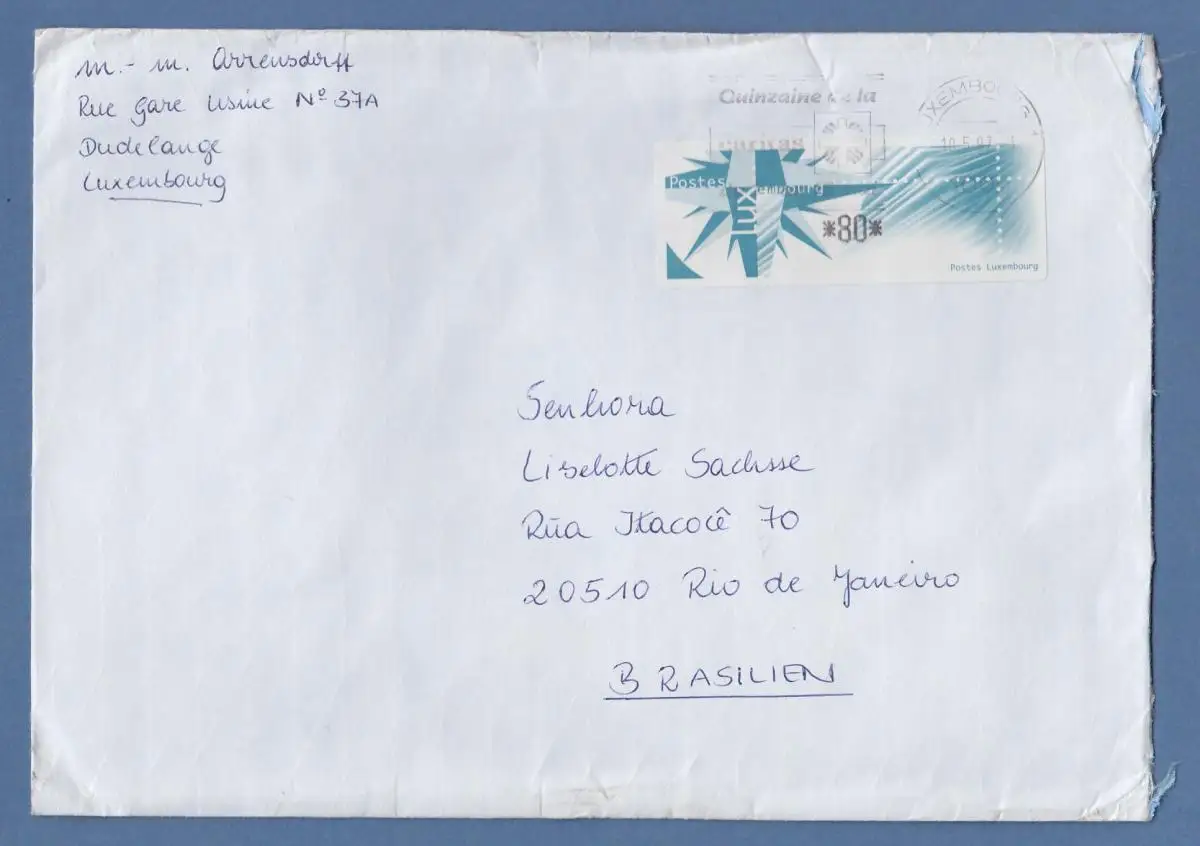 M.-M. Arrensdorff
Rue Gare Usine Nº 37A
Dudelange
Luxembourg
Quinzaine de la
caritas
LUXEMBOURG
10.5.0
Postes Luxembourg
lux
*80*
Postes Luxembourg
Senhora
Liselotte Sachsse
Rūa Itacocê 70
20510 Rio de Janeiro
BRASILIEN